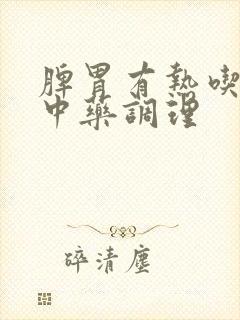 脾胃有熱喫
中藥調理
碎清塵